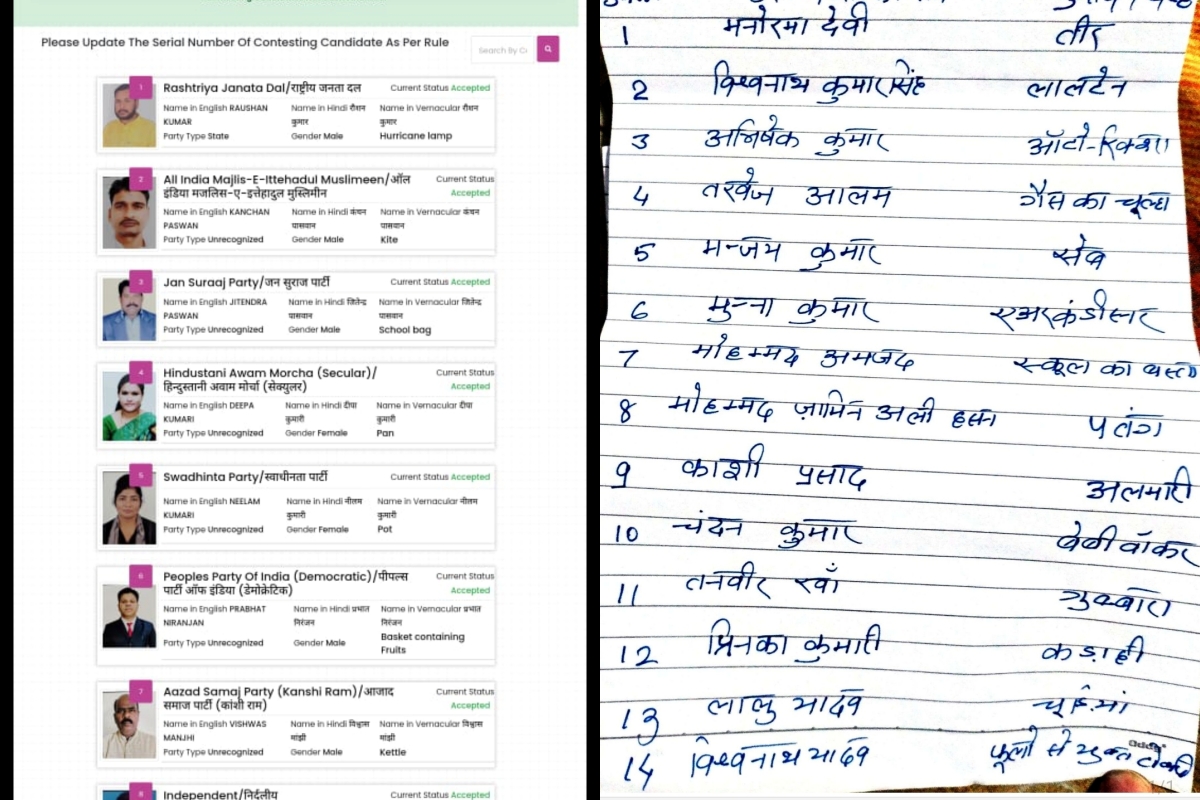 Please Update The Serial Number Of Contesting Candidate As Per Rule
Search By C
1
Rashtriya Janata Dal/राष्ट्रीय जनता दल
Current Status Accepted
Name in English RAUSHAN KUMAR
Name in Hindi रौशन कुमार
Name in Vernacular रौशन कुमार
Party Type State
Gender Male
Hurricane lamp
2
All India Majlis-E-Ittehadul Muslimeen/ऑल
इंडिया मजलिस-ए-इत्तेहादुल मुस्लिमीन
Current Status
Accepted
Name in English KANCHAN PASWAN
Name in Hindi कंचन पासवान
Name in Vernacular कंचन पासवान
Party Type Unrecognized
Gender Male
Kite
3
Jan Suraaj Party/जन सुराज पार्टी
Current Status Accepted
Name in English JITENDRA PASWAN
Name in Hindi जितेन्द्र पासवान
Name in Vernacular जितेन्द्र पासवान
Party Type Unrecognized
Gender Male
School bag
4
Hindustani Awam Morcha (Secular)/
हिन्दुस्तानी अवाम मोर्चा (सेक्युलर)
Current Status
Accepted
Name in English DEEPA KUMARI
Name in Hindi दीपा कुमारी
Name in Vernacular दीपा कुमारी
Party Type Unrecognized
Gender Female
Pan
5
Swadhinta Party/स्वाधीनता पार्टी
Current Status Accepted
Name in English NEELAM KUMARI
Name in Hindi नीलम कुमारी
Name in Vernacular नीलम कुमारी
Party Type Unrecognized
Gender Female
Pot
6
Peoples Party Of India (Democratic)/पीपल्स
पार्टी ऑफ इंडिया (डेमोक्रेटिक)
Current Status
Accepted
Name in English PRABHAT NIRANJAN
Name in Hindi प्रभात निरंजन
Name in Vernacular प्रभात निरंजन
Party Type Unrecognized
Gender Male
Basket containing
Fruits
7
Aazad Samaj Party (Kanshi Ram)/आजाद
समाज पार्टी (कांशी राम)
Current Status
Accepted
Name in English VISHWAS MANJHI
Name in Hindi विश्वास मांझी
Name in Vernacular विश्वास मांझी
Party Type Unrecognized
Gender Male
Kettle
8
Independent/निर्दलीय
Current Status Accepted
1 मनोरमा देवी तीर
2 विश्वनाथ कुमार सिंह लालटेन
3 अभिषेक कुमार ऑटो-रिक्शा
4 तरवेज आलम गैस का चूल्हा
5 मन्जय कुमार सेब
6 मुन्ना कुमार एअरकंडीसनर
7 मोहम्मद अमजद स्कूल का बस्ता
8 मोहम्मद ज़ामिन अली हसन पतंग
9 काशी प्रसाद अलमारी
10 चंदन कुमार बेबी वॉकर
11 तनवीर खाँ गुब्बारा
12 प्रिनका कुमारी कड़ाही
13 लालु यादव चूड़ियां
14 विश्वनाथ यादव फूलो से युक्त टोकरी
1/1